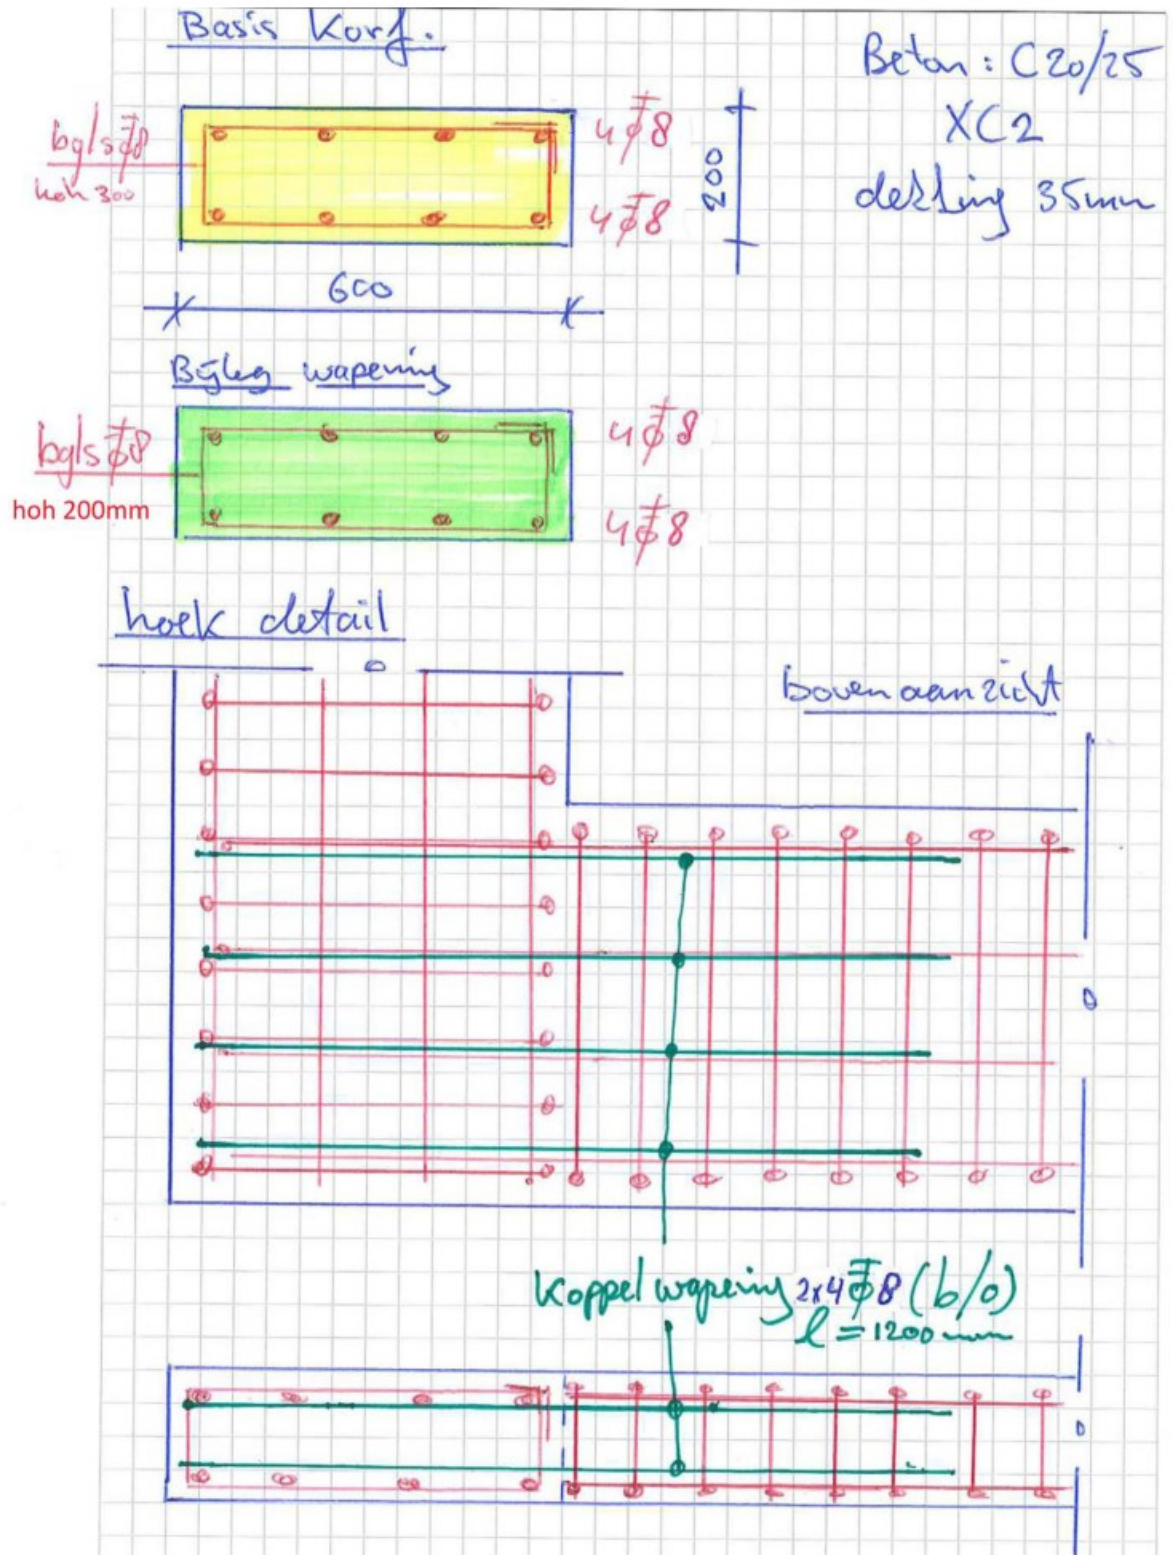 Basis Korf.
Beton: C20/25
XC2
dekking 35mm
bgls ϕ8
hoh 300
4ϕ8
4ϕ8
200
600
Bijleg wapening
bgls ϕ8
hoh 200mm
4ϕ8
4ϕ8
hoek detail
bovenaanzicht
Koppelwapening 2x4ϕ8 (b/o)
l = 1200mm